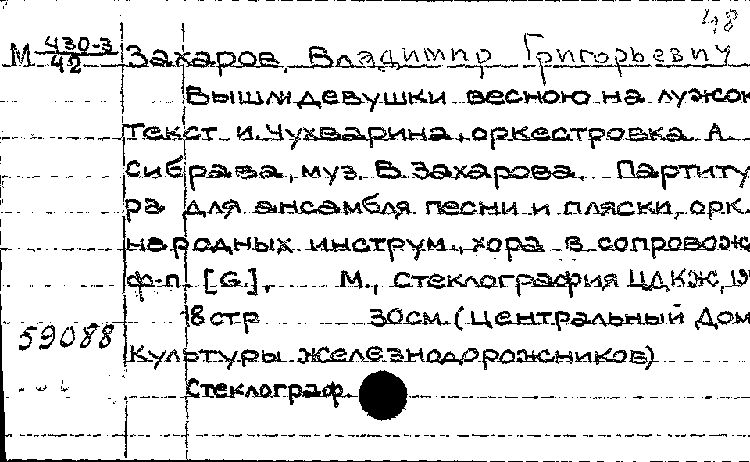 48
М 430-3/42 Захаров, Владимир Григорьевич
Вышли девушки весною на лужок
Текст И. Чухварина, оркестровка А.
Сибрава, муз. В. Захарова. Партиту
ра для ансамбля песни и пляски, орк.
народных инструм., хора в сопровож
ф-п. [G.], М., Стеклография ЦДКЖ, 19
18 стр 30см. (Центральный Дом
59088 Культуры железнодорожников)
Стеклограф.